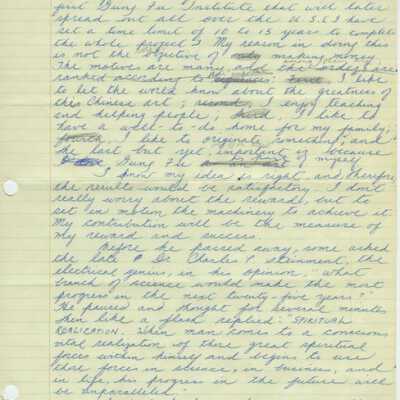 first Gung Fu Institute that will later
spread out all over the U.S. I have
set a time limit of 10 to 15 years to complete
the whole project). My reason in doing this
is not the objective of making money.
The motive are many and among them are
ranked according to : I like
to let the world know about the greatness of
this Chinese art; second, I enjoy teaching
and helping people; third, I like to
have a well-to-do home for my family;
fourth, I like to originate something; and
the last but yet important is because
Gung Fu is part of myself.
I know my idea is right, and therefore,
the results would be satisfactory. I don't
really worry about the reward, but to
set in motion the machinery to achieve it.
My contribution will be the measure of
my reward and success.
Before he passed away, some asked
the late Dr. Charles P. Steinmetz, the
electrical genius, in his opinion, "What
branch of science would make the most
progress in the next twenty-five years?"
He paused and thought for several minutes
then like a flash replied, "SPIRITUAL
REALIZATION." When man comes to a conscious
vital realization of those great spiritual
forces within himself and begins to use
those forces in science, in business, and
in life, his progress in the future will
be unparalleled."